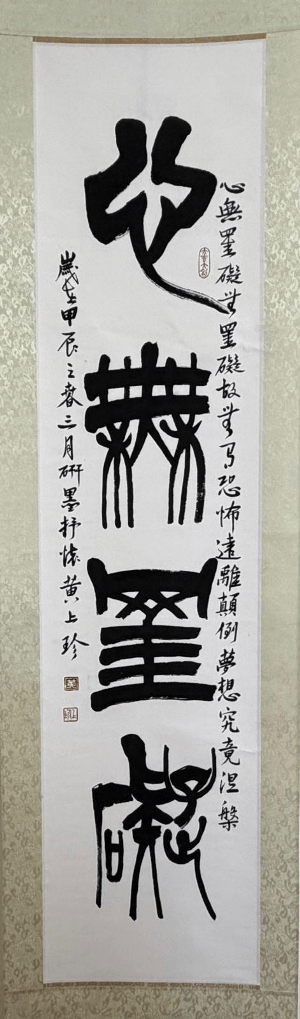 心無罣礙
心無罣礙無罣礙故無有恐怖遠離顛倒夢想究竟涅槃
歲在甲辰之春三月研墨抒懷黃上珍